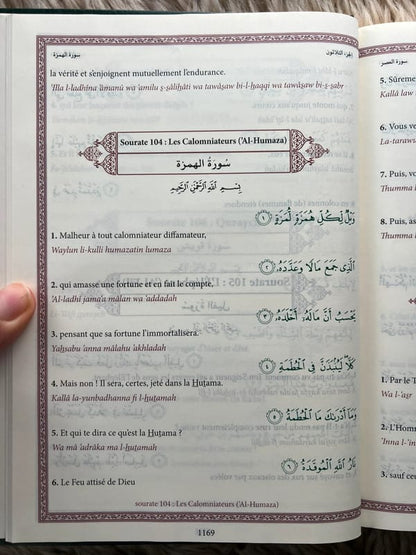 سورة الهمزة
الجزء الثلاثون
la vérité et s'enjoignent mutuellement l'endurance.
'Illa l-ladhina 'āmanū wa 'amilu ṣ-ṣāliḥāti wa tawāṣaw bi-l-ḥaqqi wa tawāṣaw bi-ṣ-ṣabr
Sourate 104 : Les Calomniateurs ('Al-Humaza)
سُورَةُ الهمزة
بِسْمِ اللَّهِ الرَّحْمَٰنِ الرَّحِيمِ
وَيْلٌ لِكُلِّ هُمَزَةٍ لُمَزَةٍ ١
1. Malheur à tout calomniateur diffamateur,
Waylun li-kulli humazatin lumaza
الَّذِي جَمَعَ مَالًا وَعَدَّدَهُ ٢
2. qui amasse une fortune et en fait le compte,
'Al-ladhî jama'a mâlan wa 'addadah
يَحْسَبُ أَنَّ مَالَهُ أَخْلَدَهُ ٣
3. pensant que sa fortune l'immortalisera.
Yaḥsabu 'anna mâlahu 'akhladah
كَلَّا لَيُنْبَذَنَّ فِي الْحُطَمَةِ ٤
4. Mais non ! Il sera, certes, jeté dans la Ḥuṭama.
Kallâ la-yunbadhanna fi l-ḥuṭamah
وَمَا أَدْرَاكَ مَا الْحُطَمَةُ ٥
5. Et qui te dira ce qu'est la Ḥuṭama ?
Wa mâ 'adrâka ma l-ḥuṭamah
نَارُ اللَّهِ الْمُوقَدَةُ ٦
6. Le Feu attisé de Dieu
sourate 104 : Les Calomniateurs ('Al-Humaza)
1169
سورة العصر
5. Sûrement
Kallâ law
6. Vous ve
La-tarawu
7. Puis, vo
Thumma l
8. Puis, as
Thumma l
1. Par le T
Wa l-'aṣr
2. L'Hom
'Inna l-'in
3. sauf ceu